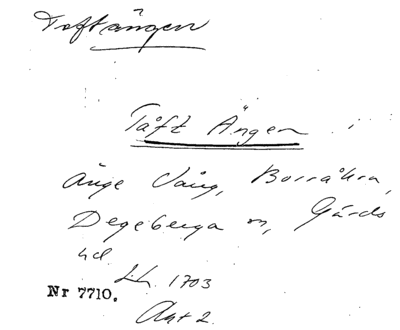 Toftängen
Tåft Ängen i
Änge Vång, Borråkra,
Degeberga sn, Gärds
hd.
Lh. 1703
Nr 7710.
Akt 2.